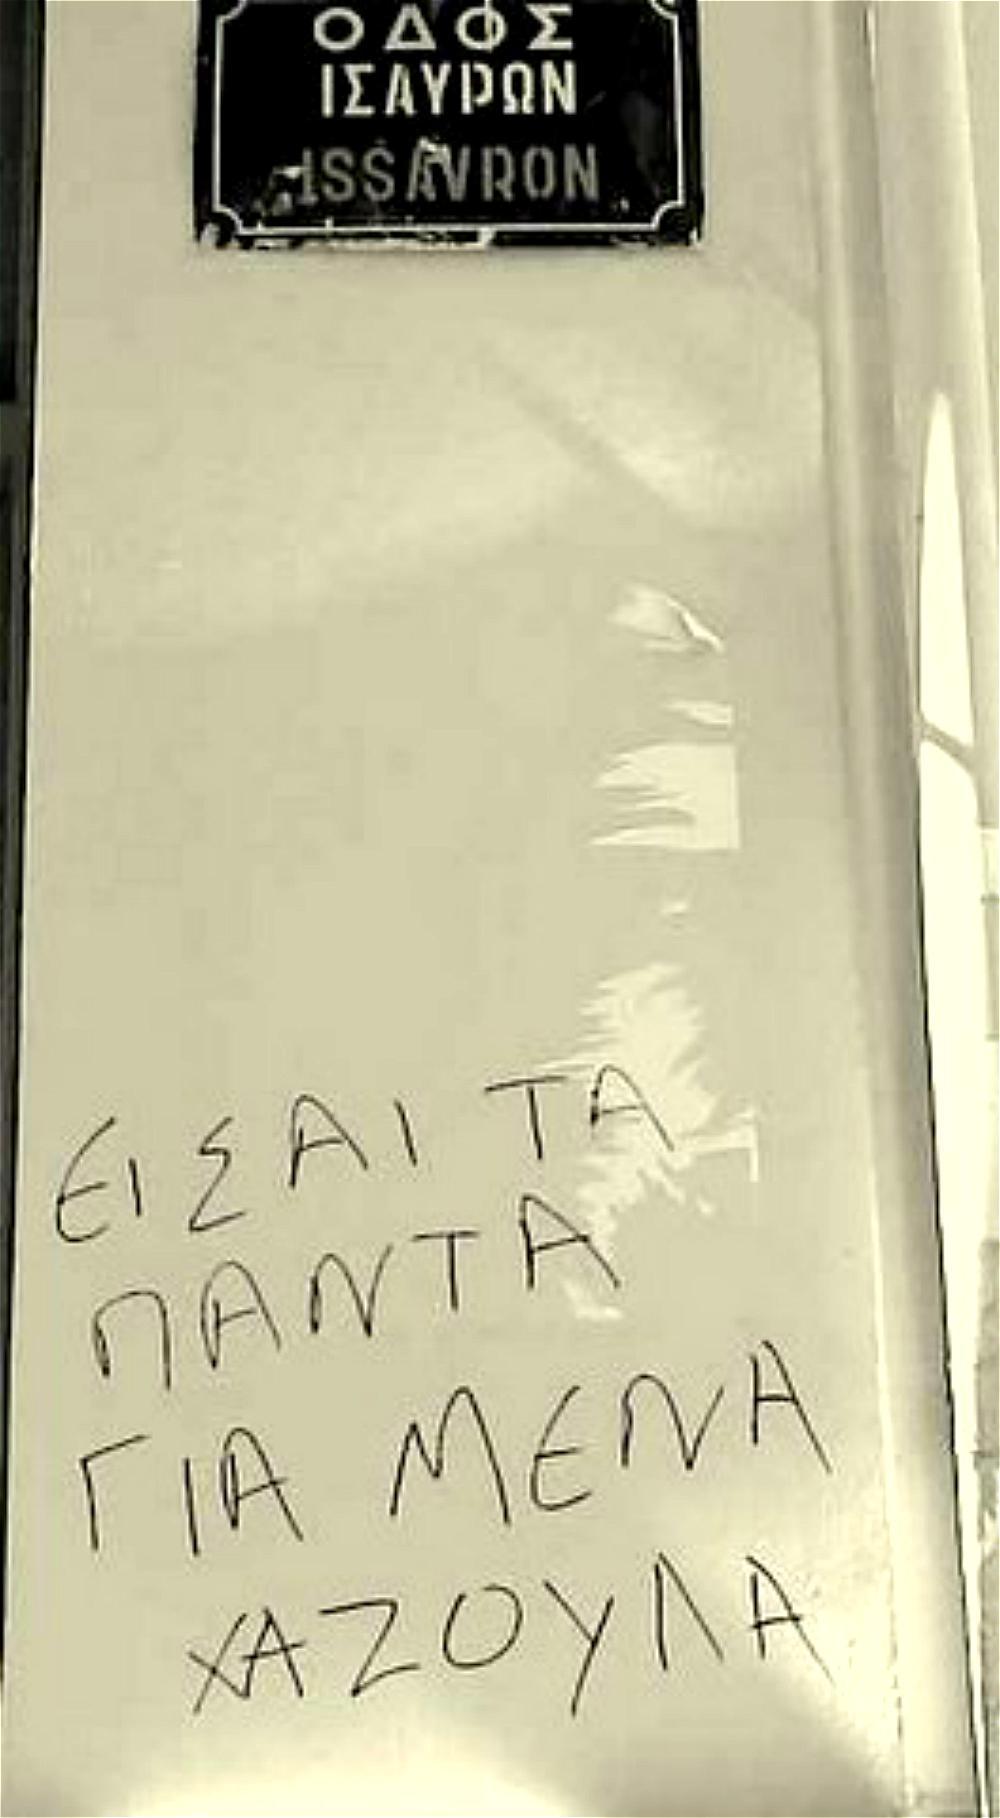 ΟΔΟΣ
ΙΣΑΥΡΩΝ
ISSAVRON
ΕΙΣΑΙ ΤΑ
ΠΑΝΤΑ
ΓΙΑ ΜΕΝΑ
ΧΑΖΟΥΛΑ